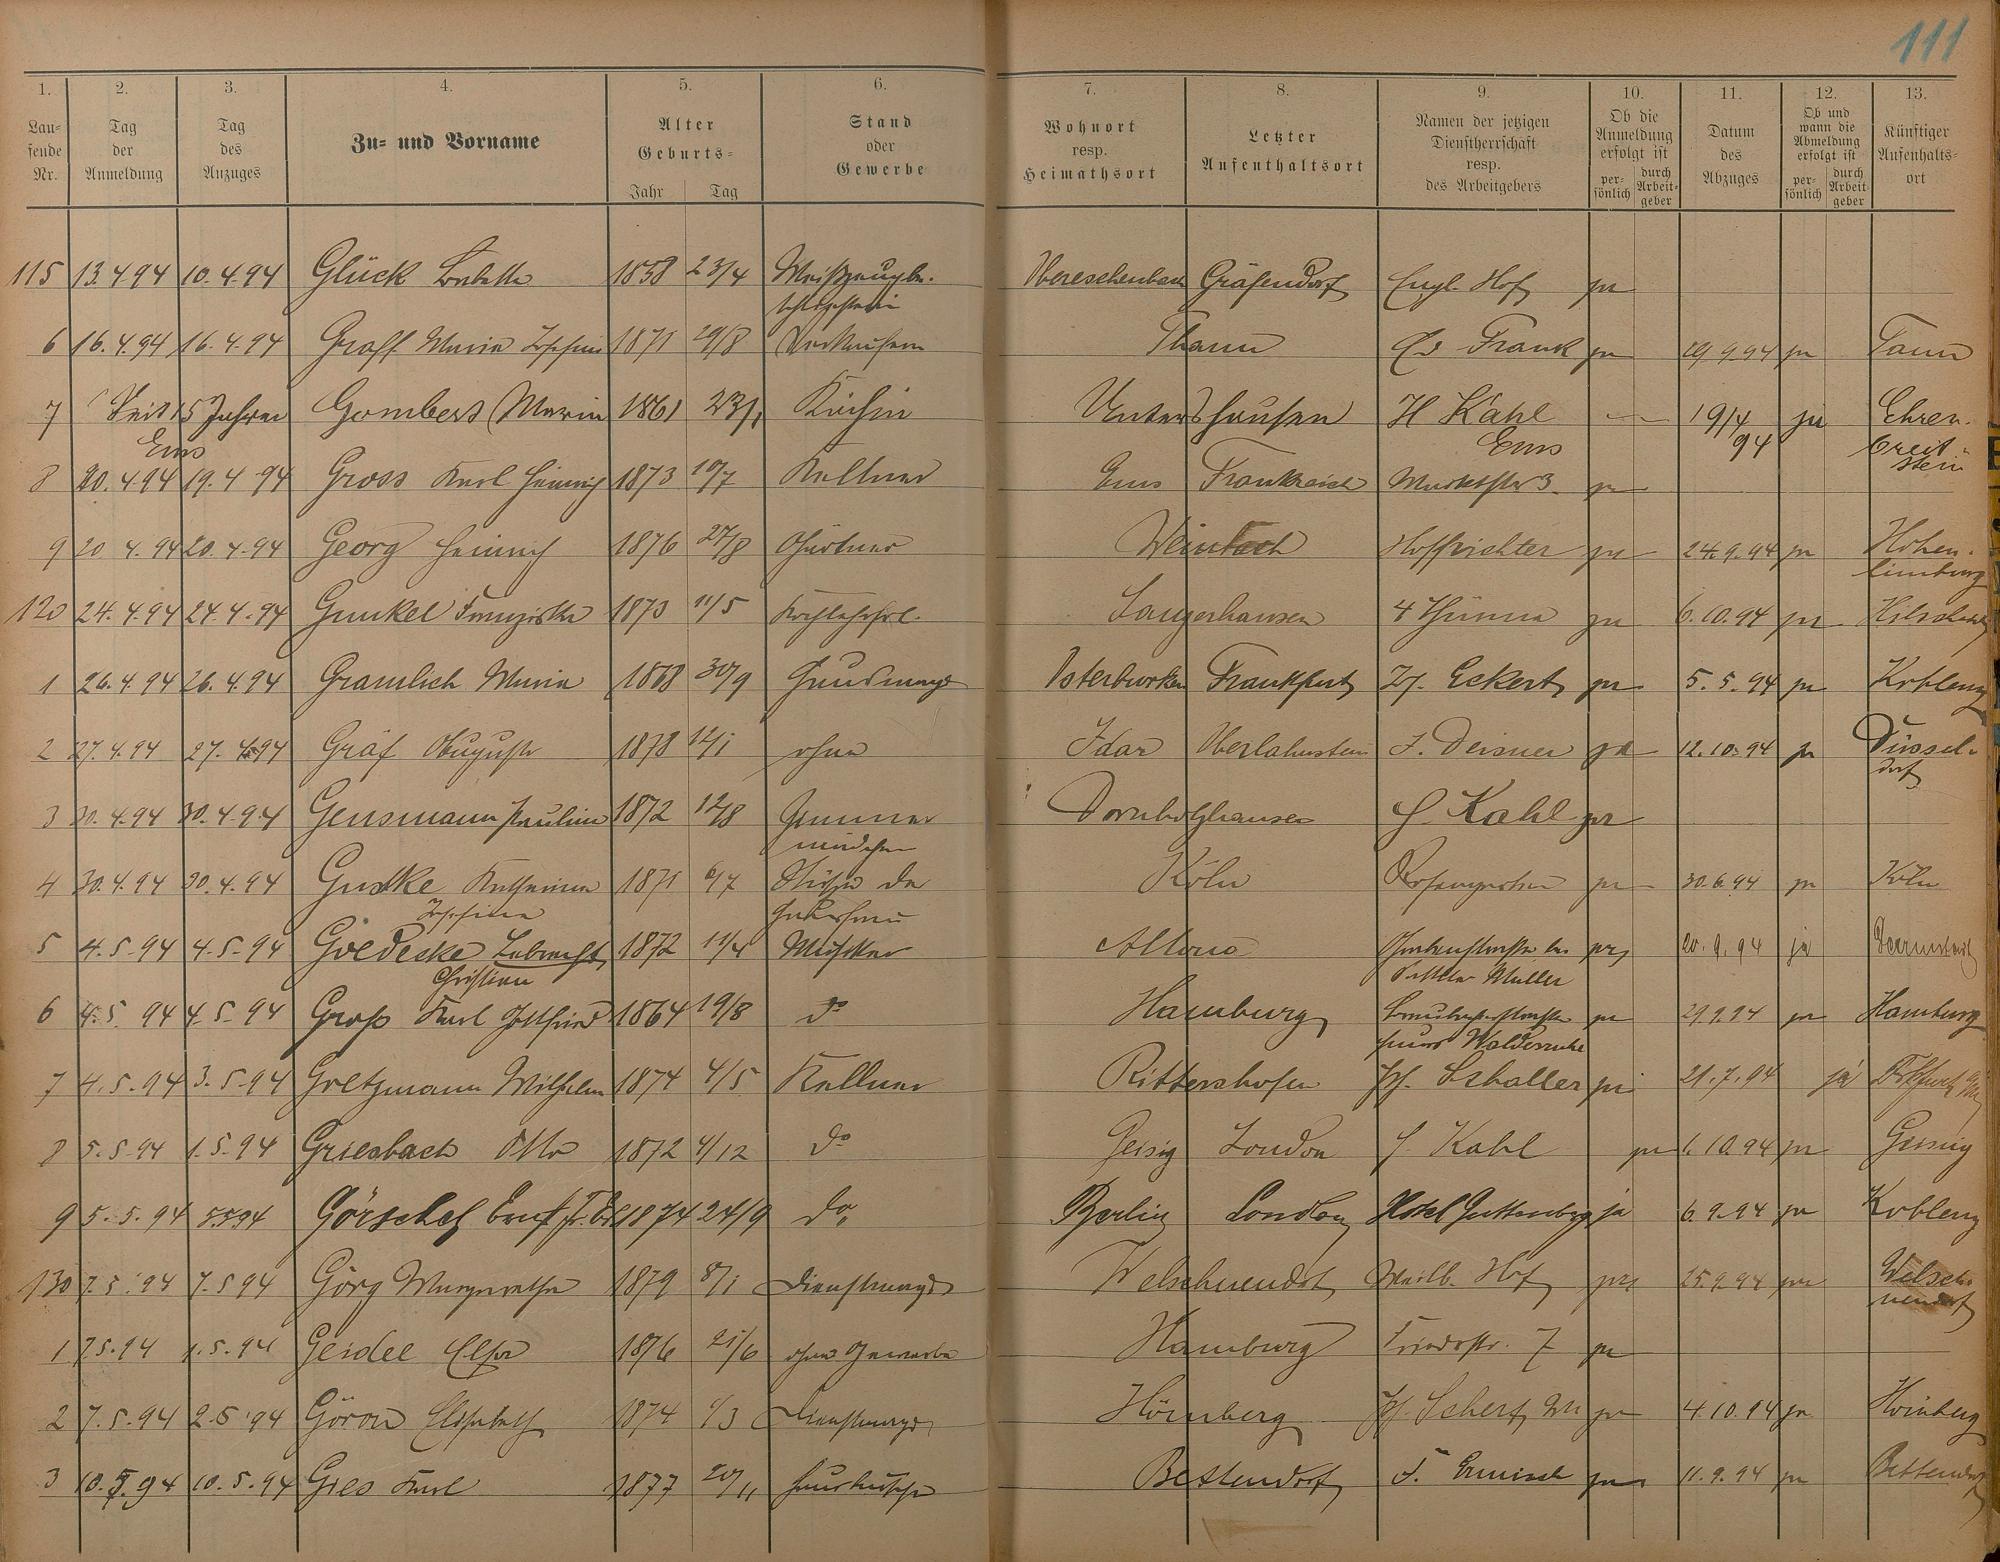 111
1. 2. 3. 4. 5. 6. 7. 8. 9. 10. 11. 12. 13.
Laufende Nr.
Tag der Anmeldung
Tag des Anzuges
Zu- und Vorname
Alter Geburts-
Jahr Tag
Stand oder Gewerbe
Wohnort resp. Heimathsort
Letzter Aufenthaltsort
Namen der jetzigen Dienstherrschaft resp. des Arbeitgebers
Ob die Anmeldung erfolgt ist
persönlich durch Arbeitgeber
Datum des Abzuges
Ob und wann die Abmeldung erfolgt ist
persönlich durch Arbeitgeber
Künftiger Aufenhalts-ort
115 13.4.94 10.4.94 Glück Babette 1858 23/4 Obereschenbach Gräfendorf Engl. Hof ja
6 16.4.94 16.4.94 Graff Maria Josefine 1871 29/8 Verkäuferin Thann Frank ja 29.9.94 ja Tann
7 Seit 15 Jahren Gombers Maria 1861 23/1 Köchin Untershausen H Kahl 19/4 94 ja Ehren-
Ems Ems breit-
stein
8 20.4.94 19.4.94 Gross Karl Heinrich 1873 10/7 Kellner Ems Frankreich Marktstr 3. ja
9 20.4.94 20.4.94 Georg Heinrich 1876 27/8 Gärtner Weinbach Hoffrichter ja 24.9.94 ja Hohen-
limburg
120 24.4.94 24.4.94 Gunkel Franziska 1873 11/5 Sangerhausen 4 Thürme ja 6.10.94 ja
1 26.4.94 26.4.94 Gramlich Maria 1868 30/9 Hausmagd Osterburken Frankfurt Eckert ja 5.5.94 ja Koblenz
2 27.4.94 27.4.94 Gräf Auguste 1878 12/1 ohne Idar Oberlahnstein J. Deisner ja 12.10.94 ja Düssel-
dorf
3 30.4.94 30.4.94 Gensmann Pauline 1872 12/8 Zimmer Dornholzhausen H. Kahl ja
mädchen
4 30.4.94 30.4.94 Guske Katharina 1871 6/7 Stütze der Köln ja 30.6.94 ja Köln
Josefina Hausfrau
5 4.5.94 4.5.94 Goedecke Lebrecht 1872 11/4 Musiker Altona ja 20.9.94 ja Darmstadt
Christian Sattler Müller
6 4.5.94 4.5.94 Groß Karl Gottfried 1864 19/8 do Hamburg ja 29.9.94 ja Hamburg
Haus Waldesruhe
7 4.5.94 3.5.94 Goetzmann Wilhelm 1874 4/5 Kellner Rittershofen Schaller ja 21.7.94 ja Frkfurt
8 5.5.94 1.5.94 Griesbach Otto 1872 4/12 do Geisig London H. Kahl ja 1.10.94 ja Geisig
9 5.5.94 5.5.94 Görschel Ernst 1874 24/9 do Berlin London Hotel Guttenberg ja 6.9.94 ja Koblenz
130 7.5.94 7.5.94 Görg Margaretha 1879 8/1 Dienstmagd Welschneudorf Weilb. Hof ja 25.9.94 ja Welsch-
neudorf
1 7.5.94 1.5.94 Geidel Elsa 1876 21/6 ohne Gewerbe Hamburg Friedrstr. 7 ja
2 7.5.94 2.5.94 Elisabeth 1874 1/3 Dienstmagd Hömberg Scherf ja 4.10.94 ja Hömberg
3 10.5.94 10.5.94 Gies Karl 1877 20/11 Hausbursche Bettendorf F. Ermisch ja 11.9.94 ja Bettendorf